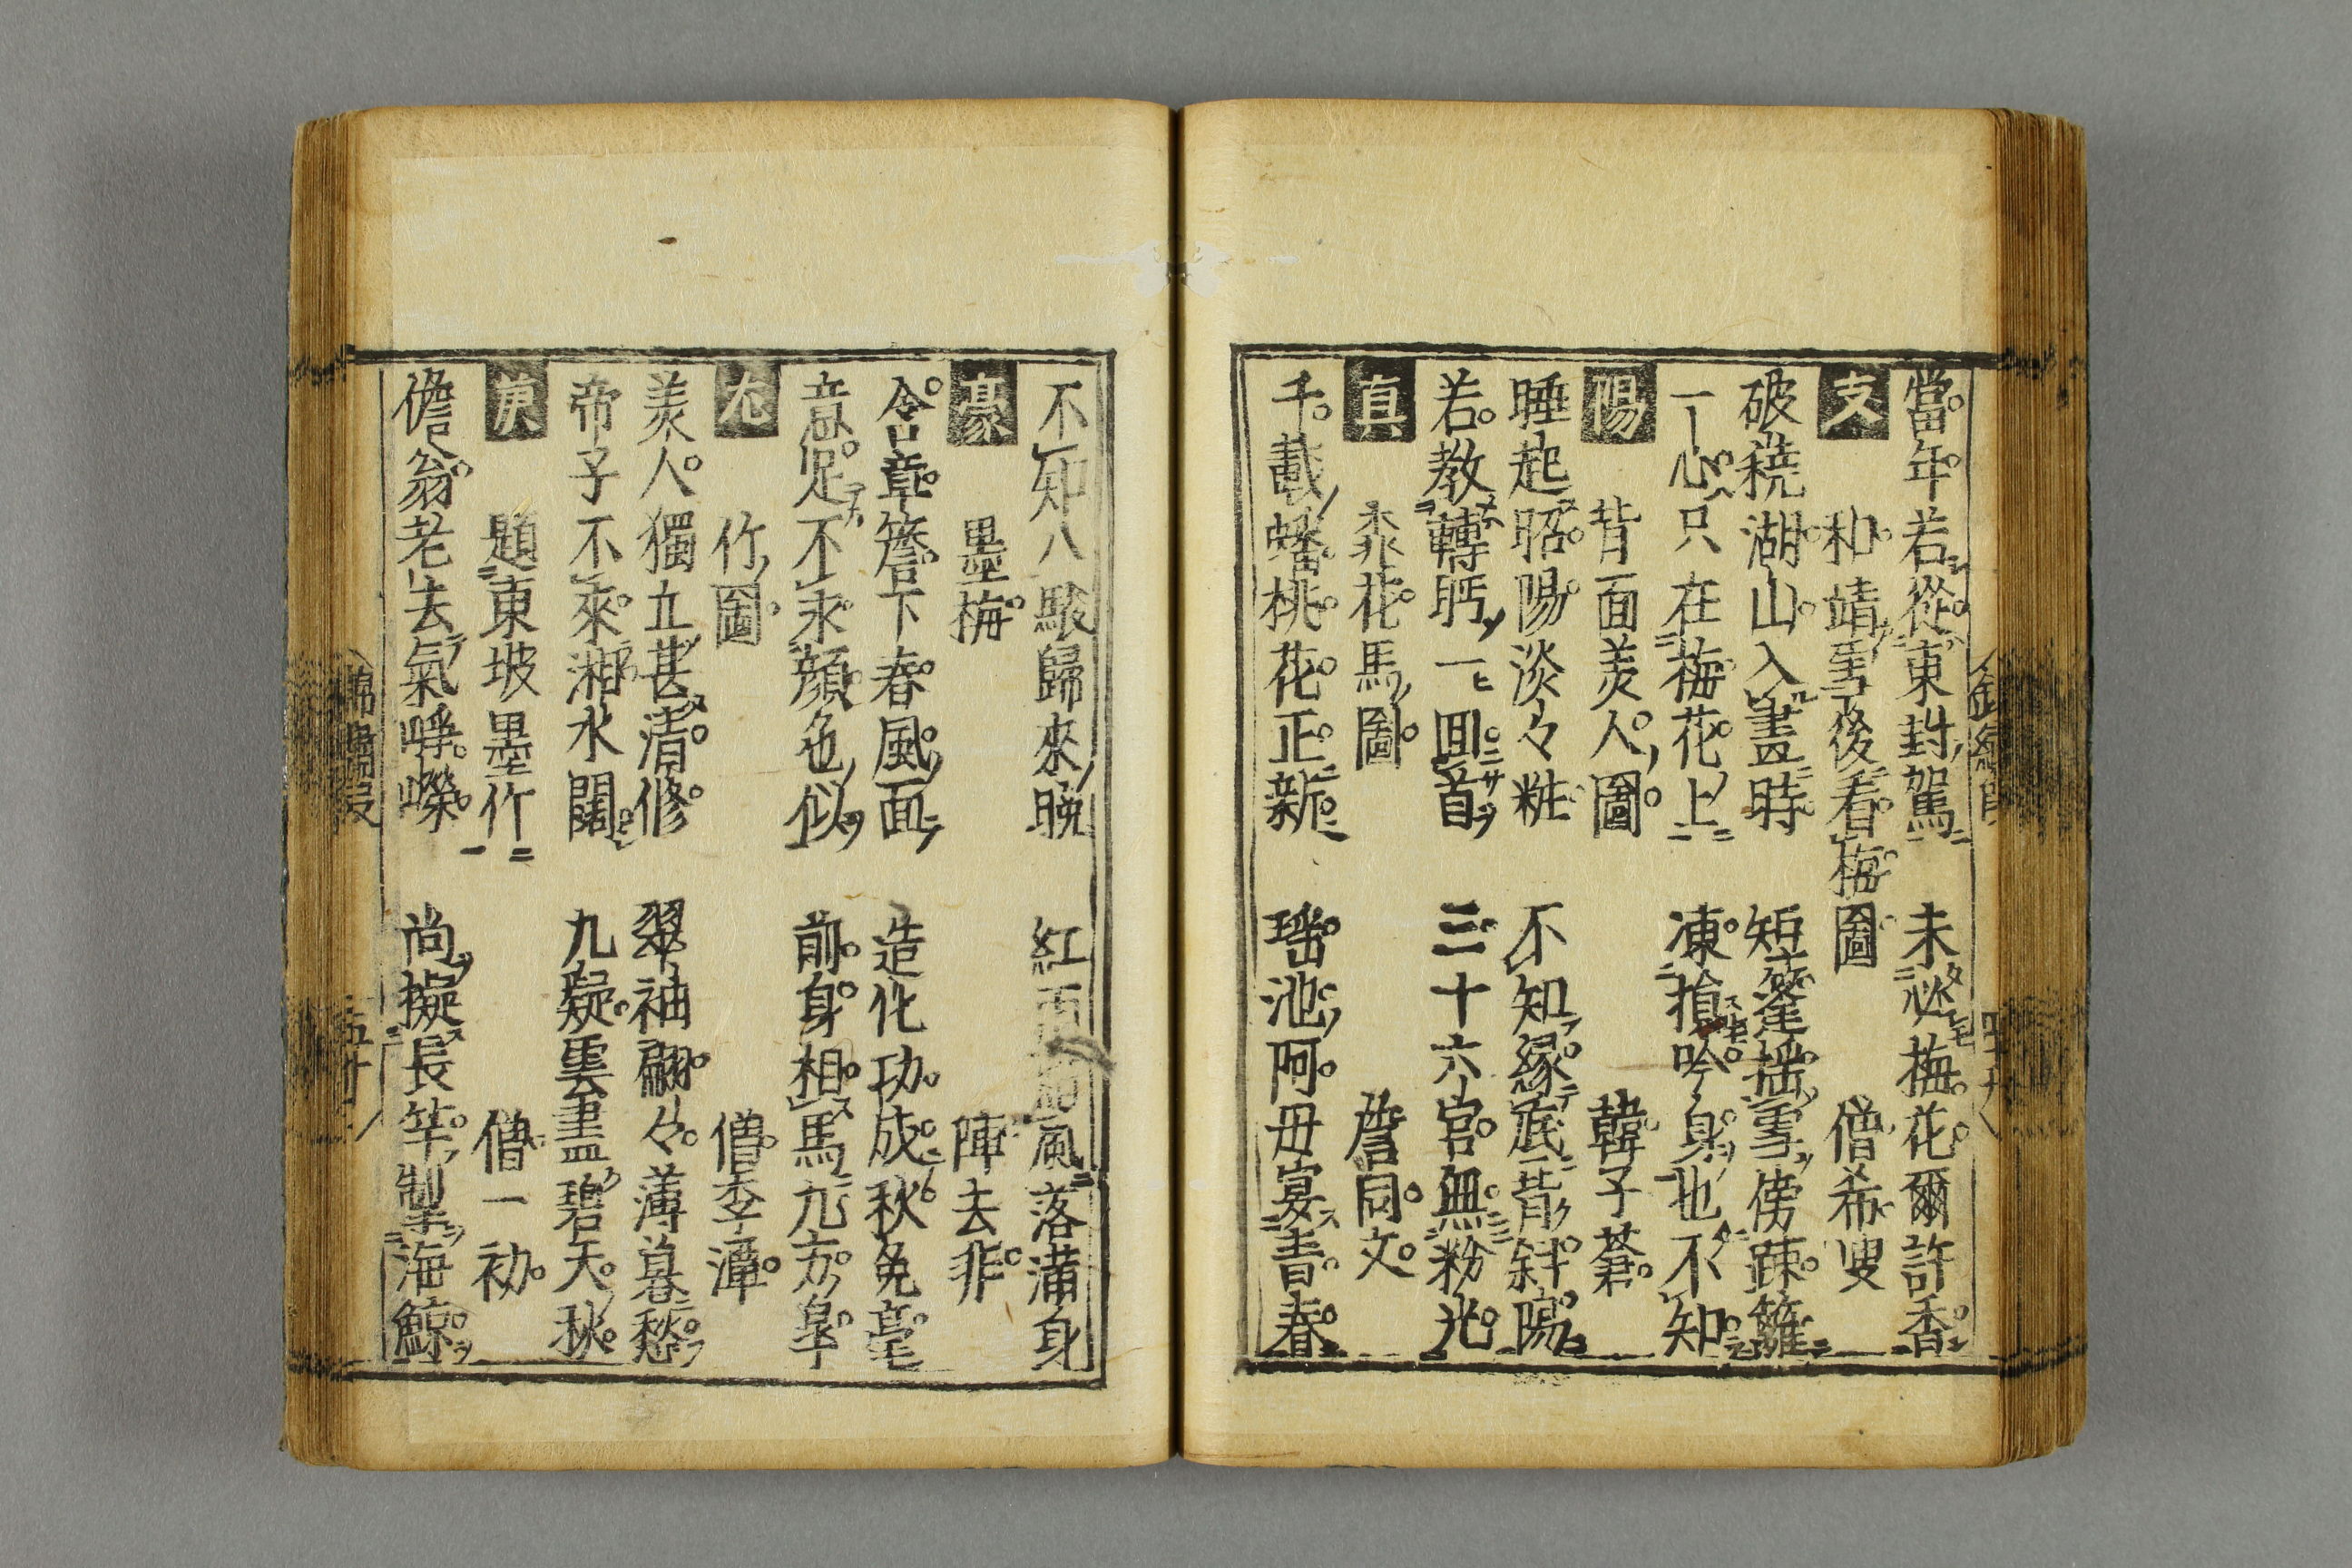 當年若從東封駕 未必梅花爾許香
支 和靖雪後看梅圖 僧希叟
破曉湖山入畫時 短篷搖雪傍疎籬
一心只在梅花上 凍損吟身也不知
陽 背面美人圖 韓子蒼
睡起昭陽淡々粧 不知緣底背斜陽
若教轉眄一囬首 三十六宮無粉光
真 桃花馬圖 詹同文
千載蟠桃花正新 瑶池阿母宴青春
不知八駿歸來晚 紅雨 風落滿身
豪 墨梅 陳去非
含章簷下春風面 造化功成秋兔毫
意足不求顔色似 前身相馬九方皐
尤 竹圖 僧季潭
美人獨立甚清修 翠袖翩々薄暮愁
帝子不來湘水闊 九疑雲盡碧天秋
庚 題東坡墨竹 僧一初
儋翁老去氣崢嶸 尚擬長竿掣海鯨
五十